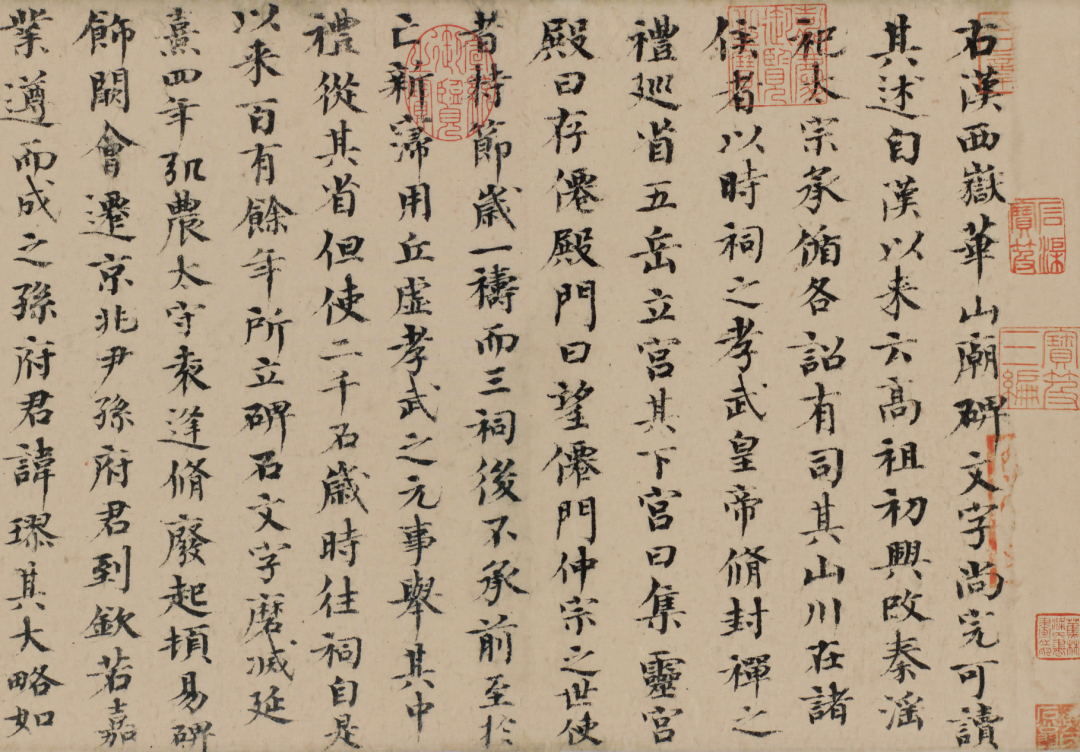 右漢西嶽華山廟碑文字尚完可讀
其述自漢以来云高祖初興改秦淫
祀太宗承循各詔有司其山川在諸
侯者以時祠之孝武皇帝脩封禪之
禮巡省五岳立宮其下宮曰集靈宮
殿曰存僊殿門曰望僊門仲宗之世使
者持節歲一禱而三祠後不承前至於
亡新寖用丘虛孝武之元事舉其中
禮從其省但使二千石歲時往祠自是
以来百有餘年所立碑石文字磨滅延
熹四年弘農太守袁逢脩廢起頓易碑
飾闕會遷京兆尹孫府君到欽若嘉
業遵而成之孫府君諱璆其大略如